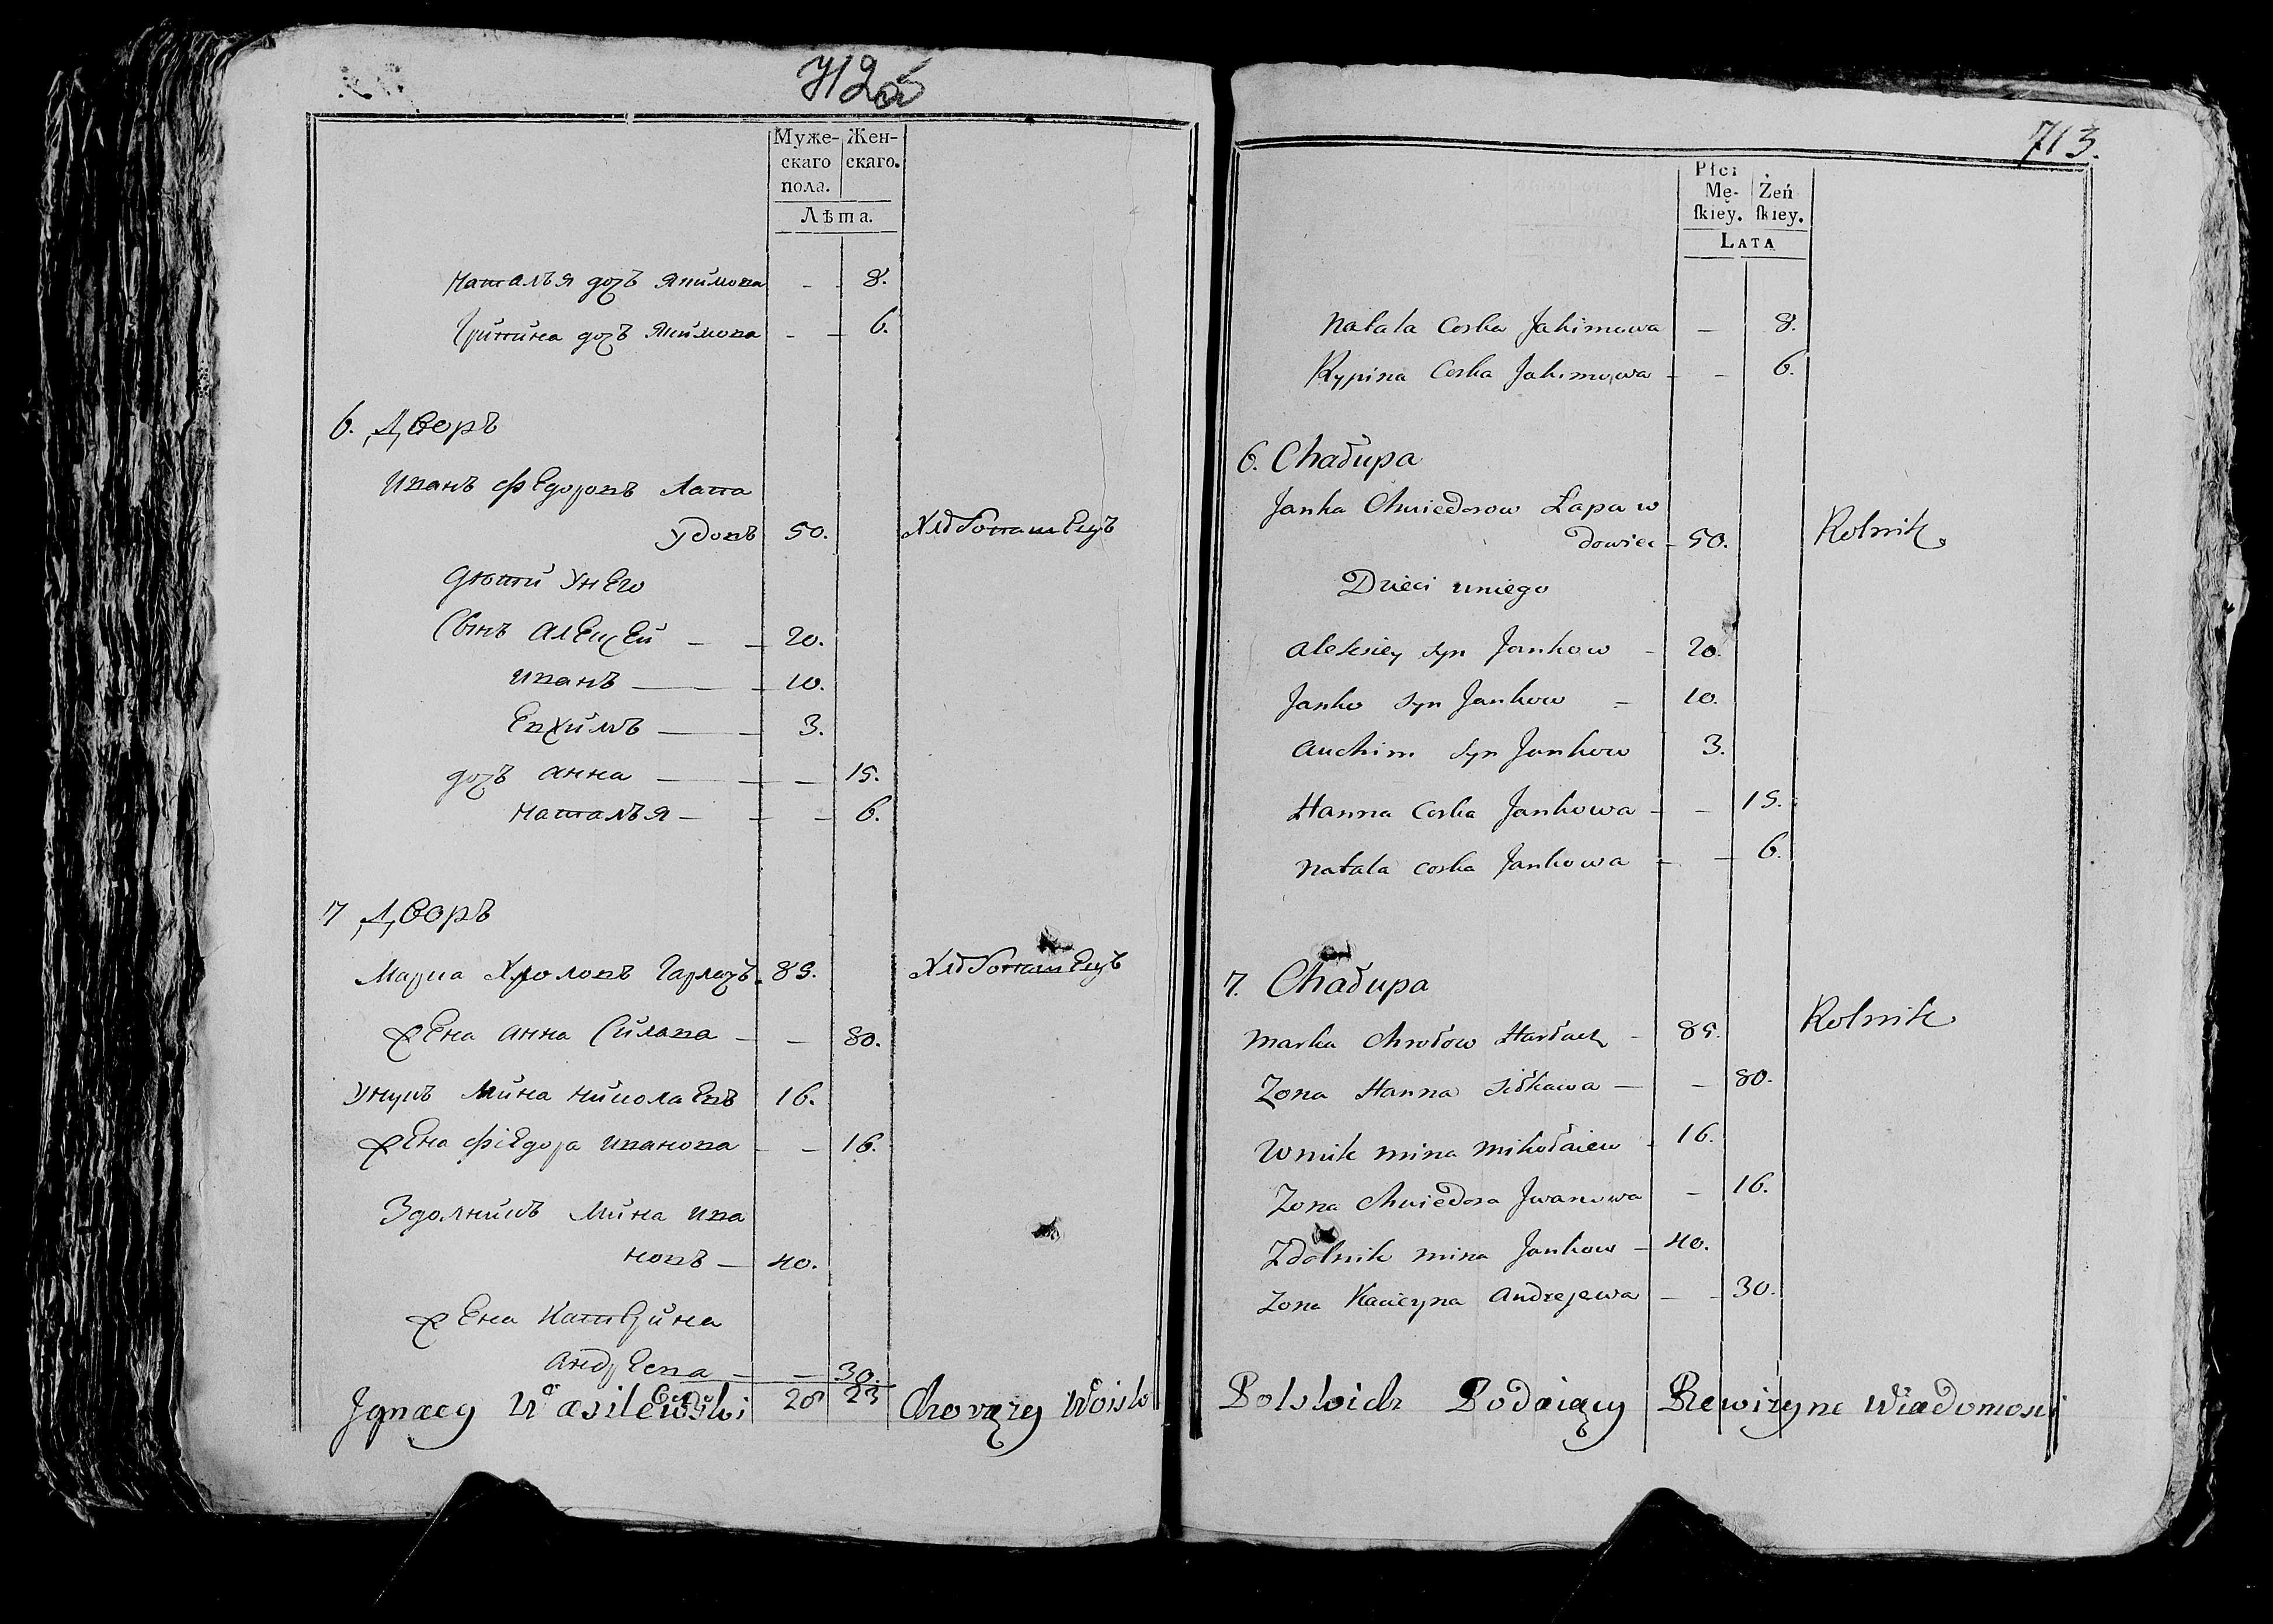 712
Муже- Жен-
скаго скаго.
пола.
Лѣта.
Наталья дочь Якимова - - 8.
Грипина дочь Якимова - - 6.
6. Дворъ
Иванъ Федоровъ Лапа
удовъ 50. Хлѣбопашецъ
Дѣти у него
Сынъ Алексей - - 20.
Иванъ - - 10.
Евхимъ - - 3.
дочь Анна - - - 15.
Наталья - - - 6.
7 Дворъ
Марка Хроловъ Гарлачъ. 85. Хлѣбопашецъ
жена Анна - - 80.
унукъ Мина Николаевъ 16.
жена Фіедора Иванова - - 16.
Здолникъ Мина Ива
новъ - 40.
жена Катерина
Андреева - - 30.
28 23
Jgnacy Wasilewski Chorąży Woisk
713.
Płci
Mę- Żeń
ſkiey. ſkiey.
LATA
Natala Corka Jakimowa - 8.
Krypina Corka Jakimowa - - 6.
6. Chałupa
Janka Chwiedorow Łapa w
dowiec - 50. Rolnik
Dzieci uniego
Aleksiey syn Jankow - 20.
Janko syn Jankow - 10.
Auchim syn Jankow 3.
Hanna Corka Jankowa - - 15.
Natala corka Jankowa - - 6.
7. Chałupa
Marka Chrołow Harłacz - 85. Rolnik
Zona Hanna - - 80.
Wnuk Mina Mikołaiew - 16.
Zona Chwiedora Jwanowa - 16.
Zdolnik Mina Jankow - 40.
Zona Kacieryna Andrejewa - - 30.
Polskich Podaiący Rewizyne Wiadomosci